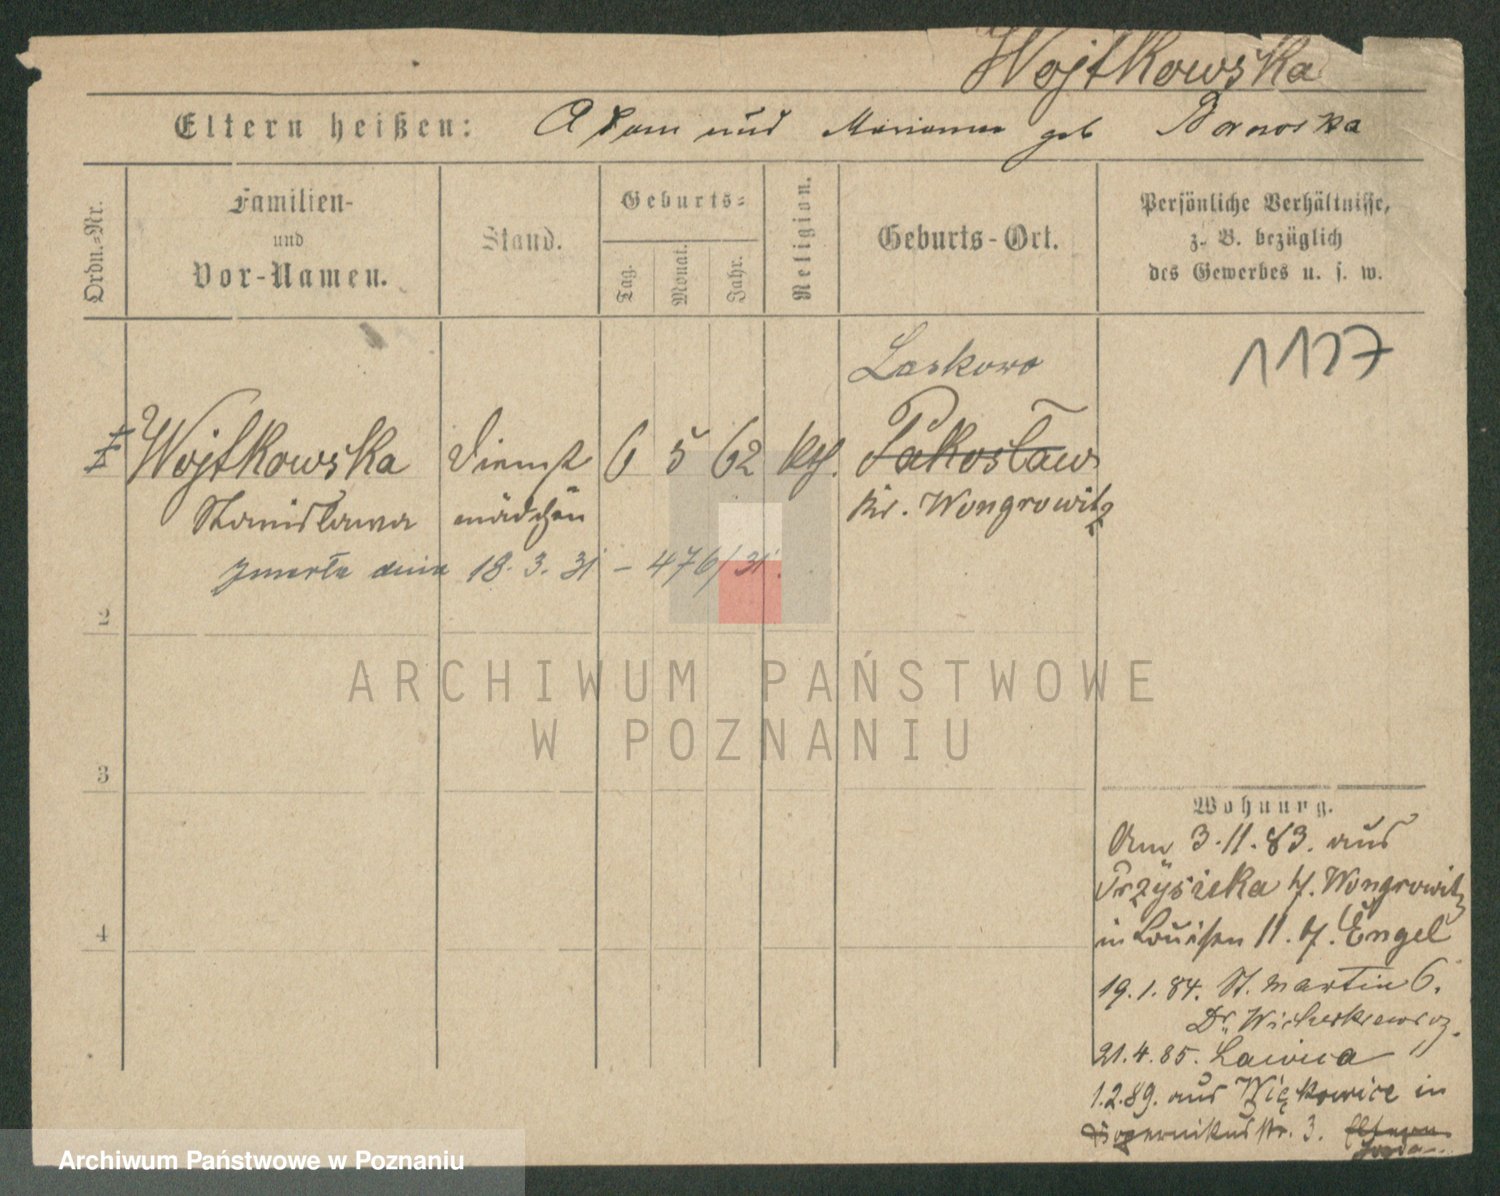 Wojtkowska
Eltern heißen: Adam und Marianna geb
Ordn.=Nr.
Familien-
und
Vor-Namen.
Stand.
Geburts=
Tag.
Monat.
Jahr.
Religion.
Geburts-Ort.
Persönliche Verhältnisse,
z. B. bezüglich
des Gewerbes u. s. w.
1127
Laskowo
Wojtkowska Dienst 6 5 62 kth. Pakosław
Stanisława mädchen Kr. Wongrowitz
zmarła dnia 18. 3. 31 – 476/31.
2
3
4
ARCHIWUM PAŃSTWOWE
W POZNANIU
Wohnung.
Am 3.11.83. aus
Przysieka b/. Wongrowitz
in Louisen 11. b/. Engel
19.1.84. St. Martin 6.
Dr. Wicherkiewicz.
21.4.85. Lawica
1.2.89. aus Więkowice in
Kopernikusstr. 3.
Archiwum Państwowe w Poznaniu